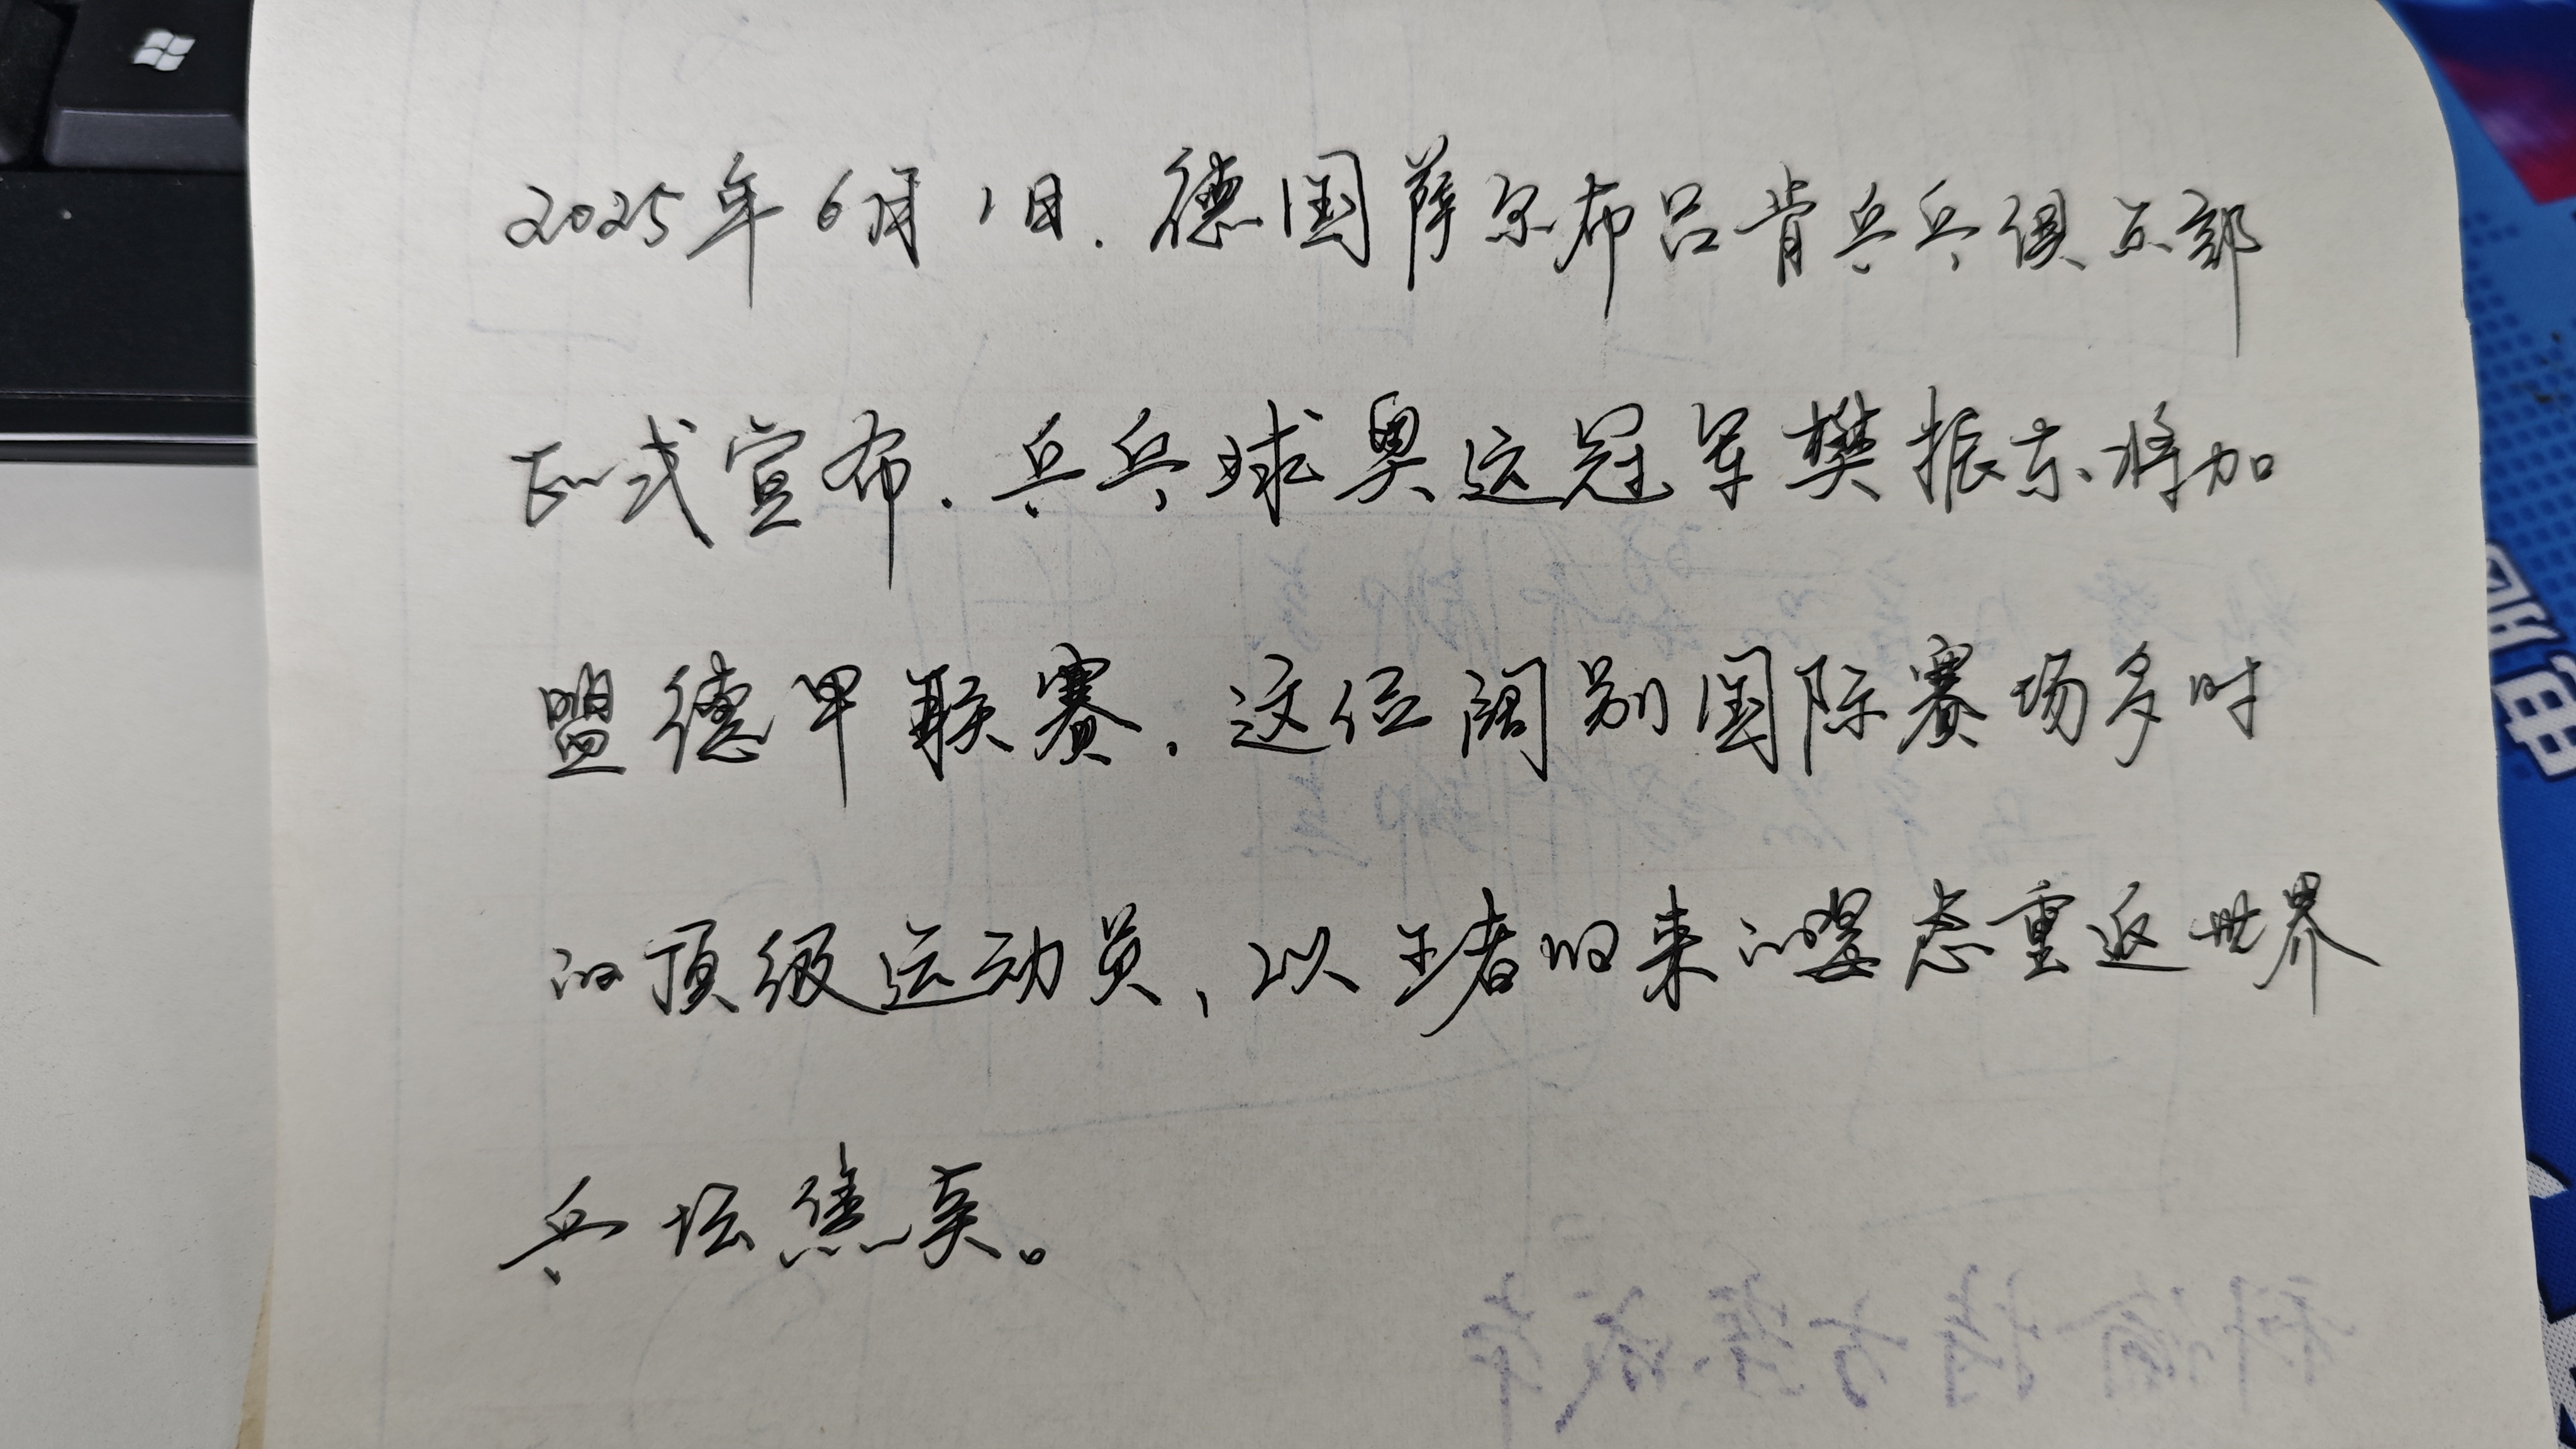 2025年6月1日.德国萨尔布吕肯乒乓俱乐部
正式宣布.乒乓球奥运冠军樊振东将加
盟德甲联赛.这位阔别国际赛场多时
的顶级运动员,以王者归来的姿态重返世界
乒坛焦点。